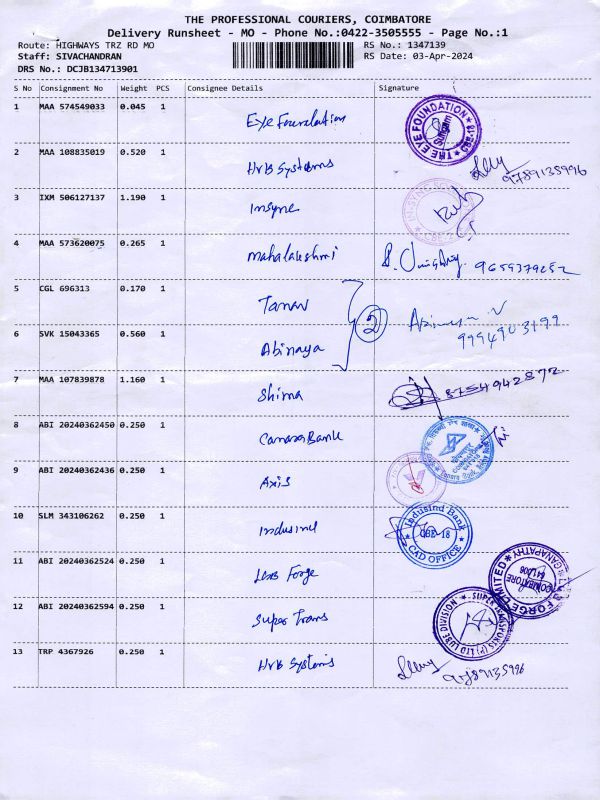 THE PROFESSIONAL COURIERS, COIMBATORE
Delivery Runsheet - MO - Phone No.:0422-3505555 - Page No.:1
Route: HIGHWAYS TRZ RD MO RS No.: 1347139
Staff: SIVACHANDRAN RS Date: 03-Apr-2024
DRS No.: DCJB134713901
S No Consignment No Weight PCS Consignee Details Signature
1 MAA 574549033 0.045 1 Eye Foundation THE EYE FOUNDATION
2 MAA 108835019 0.520 1 HrB Systems 9789135996
3 IXM 506127137 1.190 1 Insync
4 MAA 573620075 0.265 1 Mahalakshmi
5 CGL 696313 0.170 1 2 Abinaya V
6 SVK 15043365 0.560 1 Abinaya 9994903199
7 MAA 107839878 1.160 1 Shima 8754942872
8 ABI 20240362450 0.250 1 Canara Bank
9 ABI 20240362436 0.250 1 Axis
10 SLM 343106262 0.250 1 Indusind Indusind Bank CBE-18 CAD OFFICE
11 ABI 20240362524 0.250 1 Lens Forge FORGE LIMITED GANAPATHY COIMBATORE 641006
12 ABI 20240362594 0.250 1 Super Trans SUPER TRANSPORTS (P) LTD LUBE DIVISION
13 TRP 4367926 0.250 1 HrB Systems 9789135996